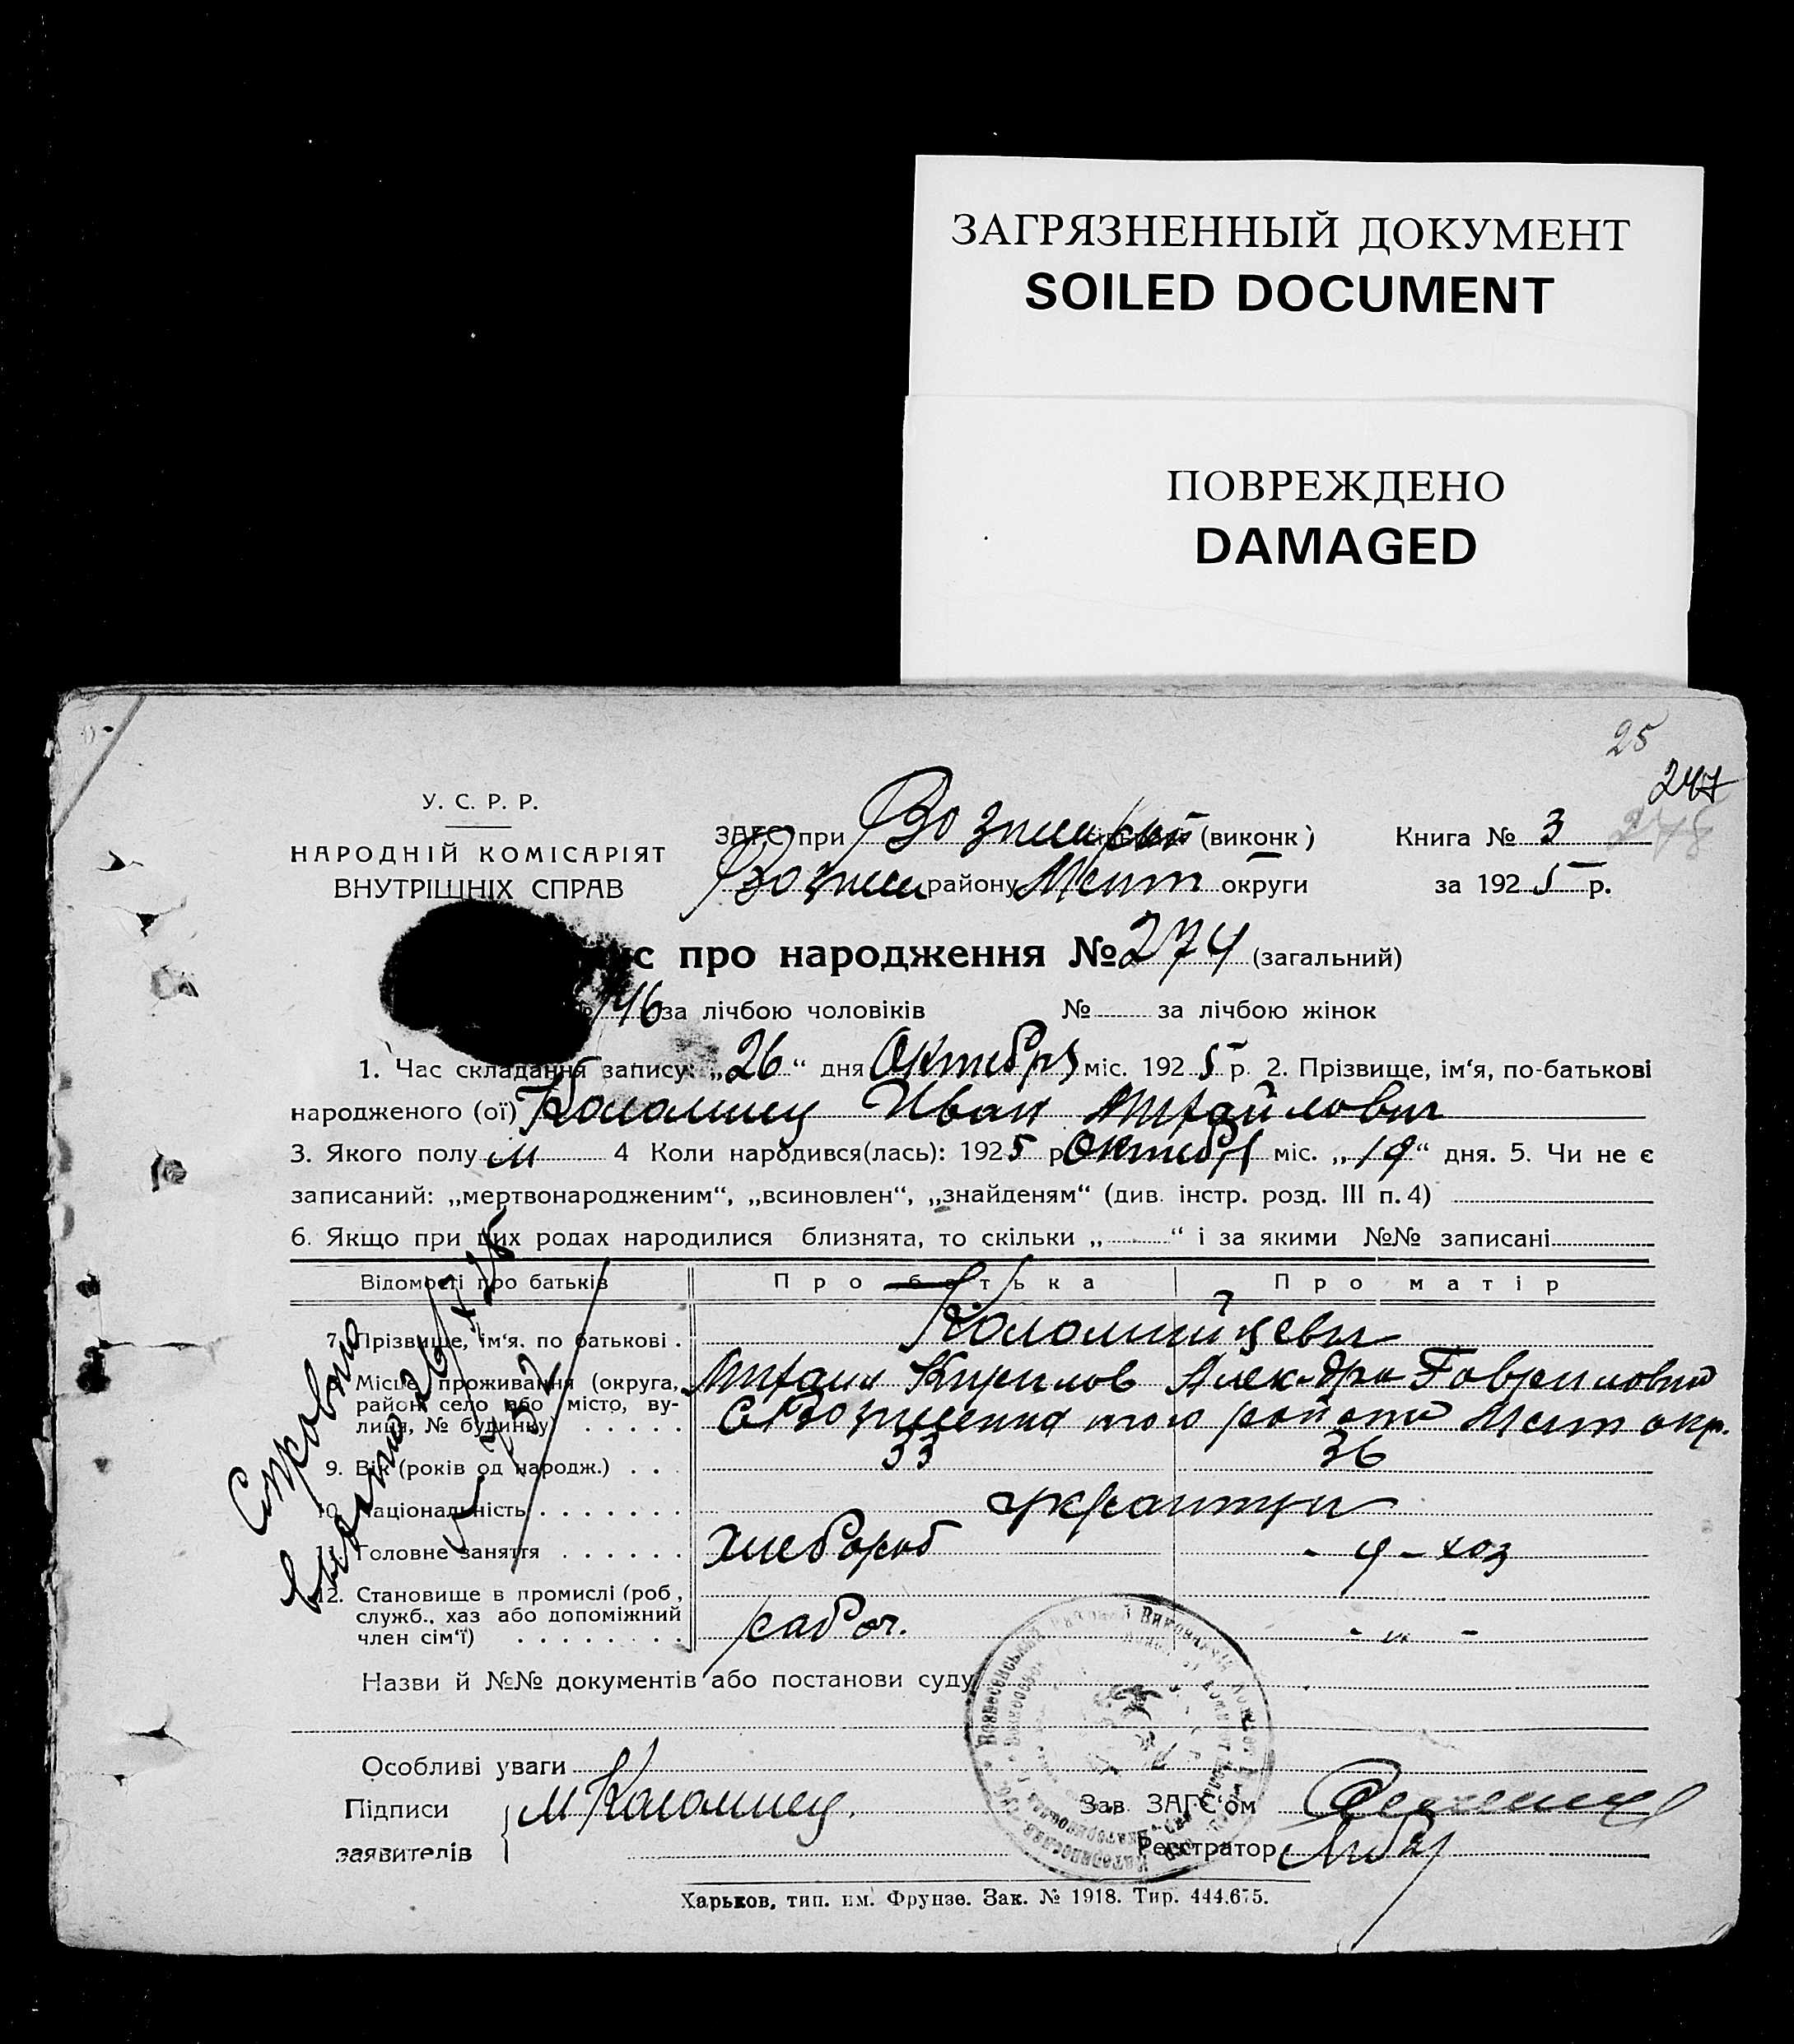 ЗАГРЯЗНЕННЫЙ ДОКУМЕНТ
SOILED DOCUMENT
ПОВРЕЖДЕНО
DAMAGED
25
247
У. С. Р. Р.
НАРОДНІЙ КОМІСАРІЯТ
ВНУТРІШНІХ СПРАВ
ЗАГС при (виконк)
району Мелит округи
Книга № 3
за 1925 р.
про народження № 274 (загальний)
146 за лічбою чоловіків № за лічбою жінок
1. Час складання запису: „26“ дня Октября міс. 1925 р. 2. Прізвище, ім‘я, по-батькові
народженого (ої) Коломиец Иван Михайлович
3. Якого полу м 4 Коли народився(лась): 1925 р Октября міс. „19“ дня. 5. Чи не є
записаний: „мертвонародженим“, „всиновлен“, „знайденям“ (див. інстр. розд. III п. 4)
6. Якщо при цих родах народилися близнята, то скільки „ “ і за якими №№ записані
Відомості про батьків Про батька Про матір
7. Прізвище, ім‘я. по батькові . Коломийцевы
Михаил Кирилов Алек-дра Гавриловна
Місце проживання (округа,
район, село або місто, ву-
лиця, № будинку) . . . . .
9. Вік (років од народж.) . . . 33 36
10. Національність . . . . . . . украинцы
11. Головне заняття . . . . . . хлебороб - ч - хоз
12. Становище в промислі (роб,
служб., хаз або допоміжний
член сім‘ї) . . . . . . . . рабоч. - „ -
Назви й №№ документів або постанови суду
Особливі уваги
Підписи М Коломиец.
заявителів
Зав. ЗАГС‘ом
Реєстратор
Харьков, тип. им. Фрунзе. Зак. № 1918. Тир. 444.675.